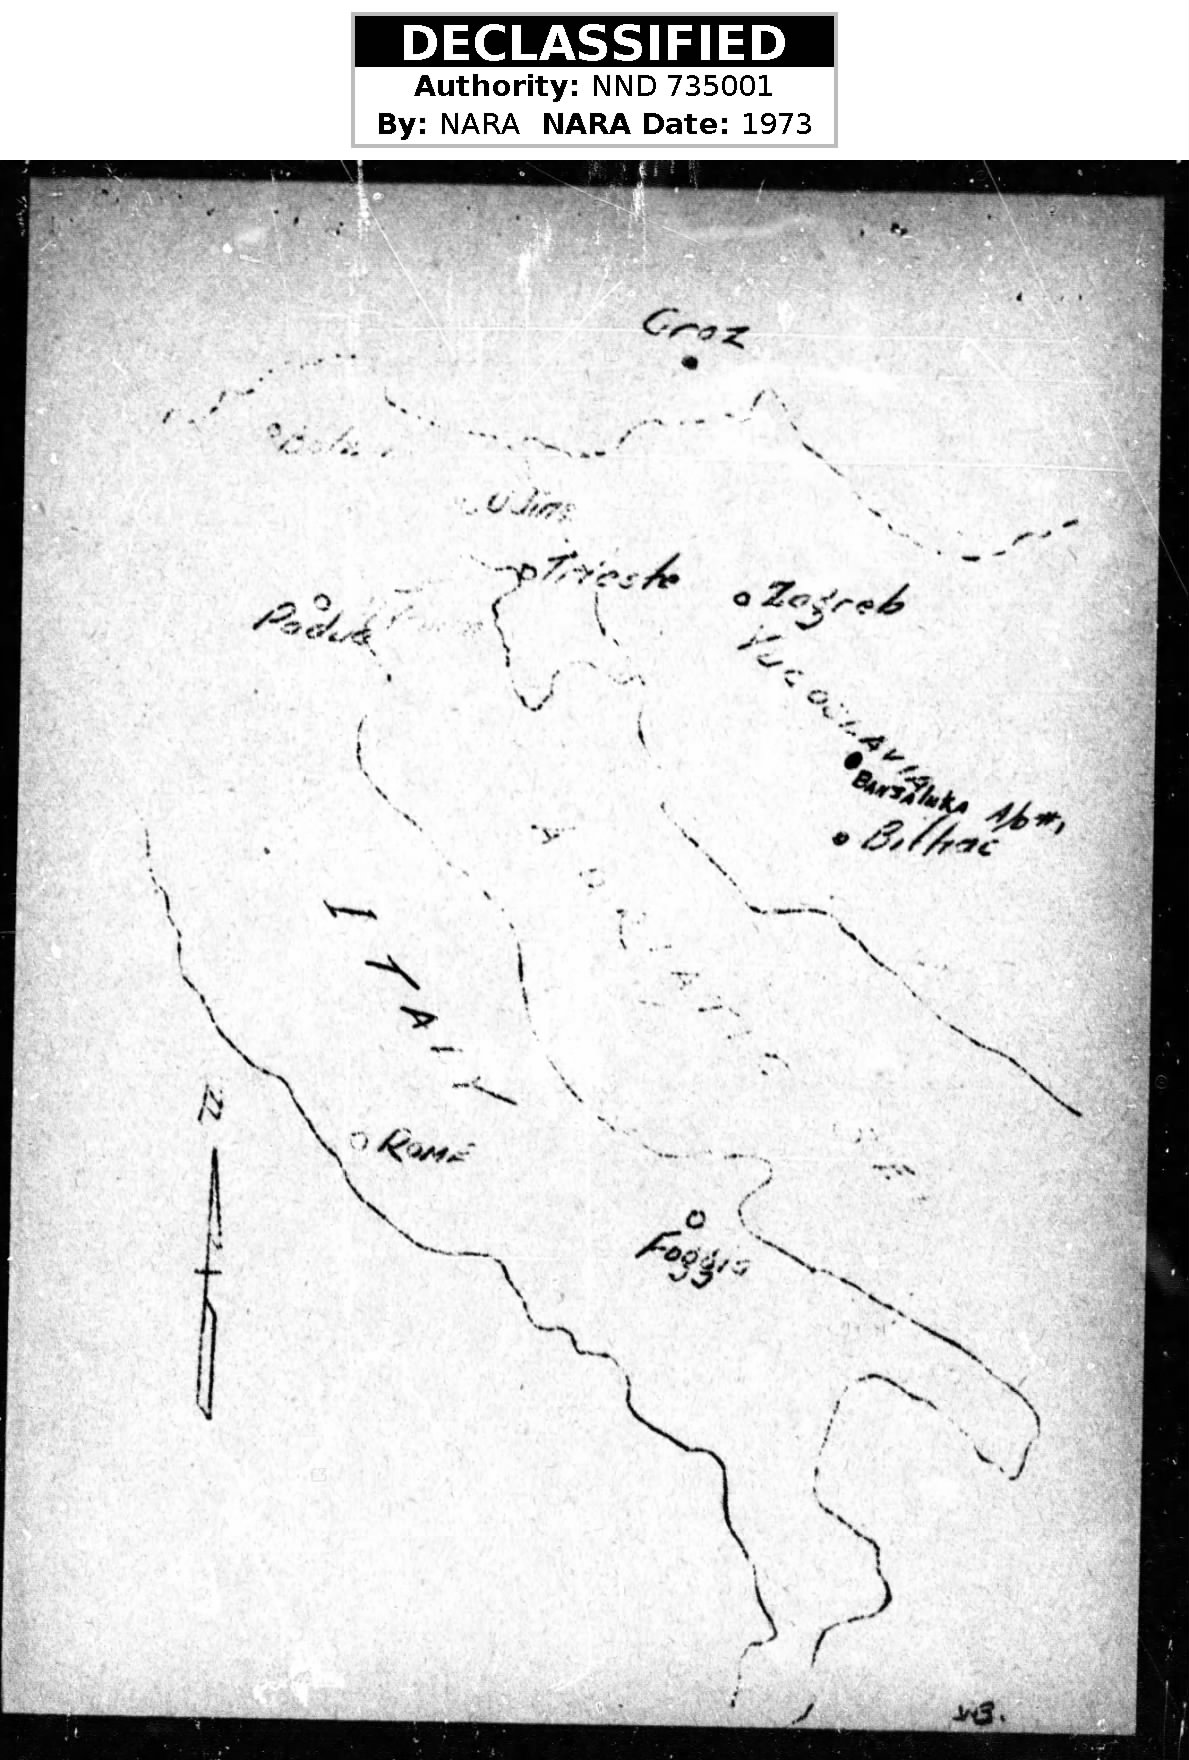 DECLASSIFIED
Authority: NND 735001
By: NARA NARA Date: 1973
Graz
Udine
Trieste
Zagreb
Padua
YUGOSLAVIA
BANJALUKA A/D #1
Bilhac
ADRIATIC
ITALY
N
ROME
Foggia